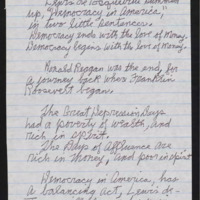 up, "Democracy in America,"
in two little sentences.
Democracy ends with the love of Money.
Democracy begins with the love of Money.
Ronald Reagan was the end, for
a journey back when Franklin
Roosevelt began.
The Great Depression Days
had a poverty of wealth, and
rich in spirit.
The Days of Affluence are
rich in money, and poor in spirit
Democracy in America, has
a balancing act, Lewis de-